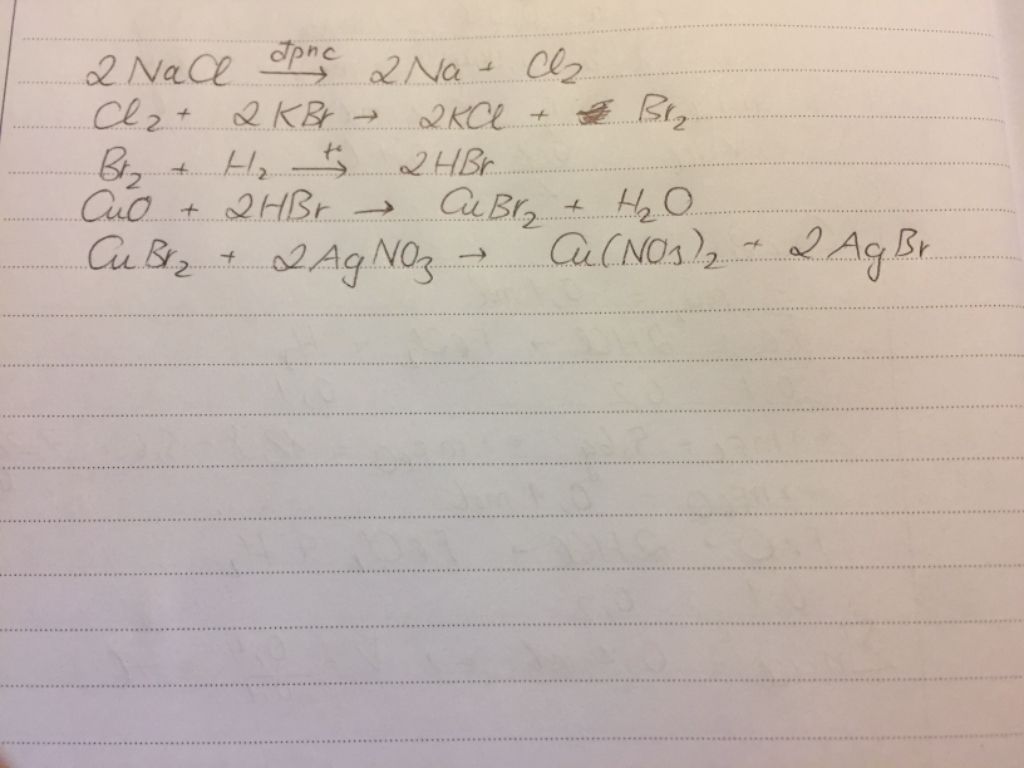 2NaCl đpnc → 2Na + Cl2
Cl2 + 2KBr → 2KCl + Br2
Br2 + H2 t° → 2HBr
CuO + 2HBr → CuBr2 + H2O
CuBr2 + 2AgNO3 → Cu(NO3)2 + 2AgBr